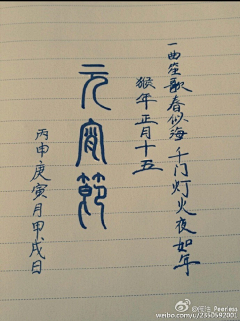 一曲笙歌春似海 千门灯火夜如年
猴年 正月十五
元宵節
丙申·庚寅月甲戌日
Peerless
weibo.com/u/2350692001